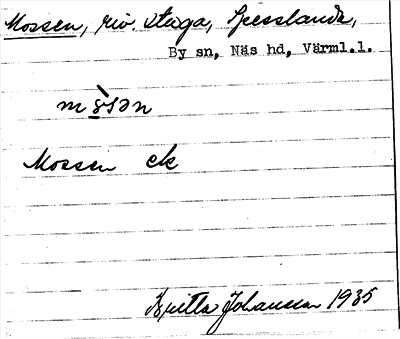 Mossen, riv. stuga, Spesslanda,
By sn, Näs hd, Värml.l.
Mossen ek
Britta Johansson 1935